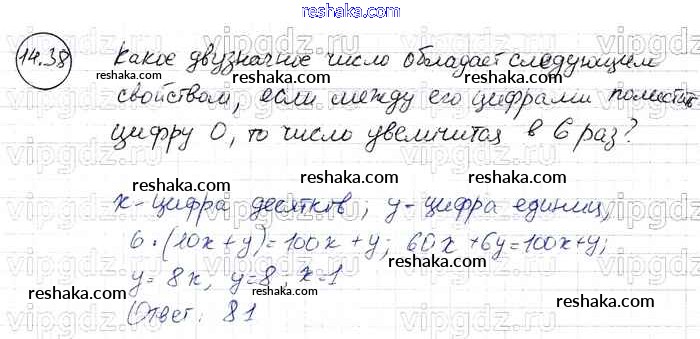 reshaka.com
14.38 Какое двузначное число обладает следующем
reshaka.com reshaka.com reshaka.com
свойством, если между его цифрами поместить
цифру 0, то число увеличится в 6 раз?
reshaka.com reshaka.com
x - цифра десятков; y - цифра единиц,
reshaka.com reshaka.com reshaka.com
6·(10x+y)=100x+y; 60x+6y=100x+y;
reshaka.com reshaka.com
y=8x, y=8; x=1
reshaka.com reshaka.com reshaka.com
Ответ: 81
reshaka.com